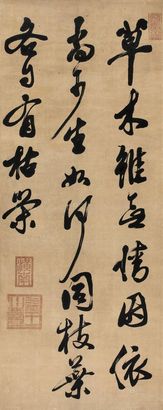 草木雖無情因依
尚可生如何同枝葉
各自有枯榮